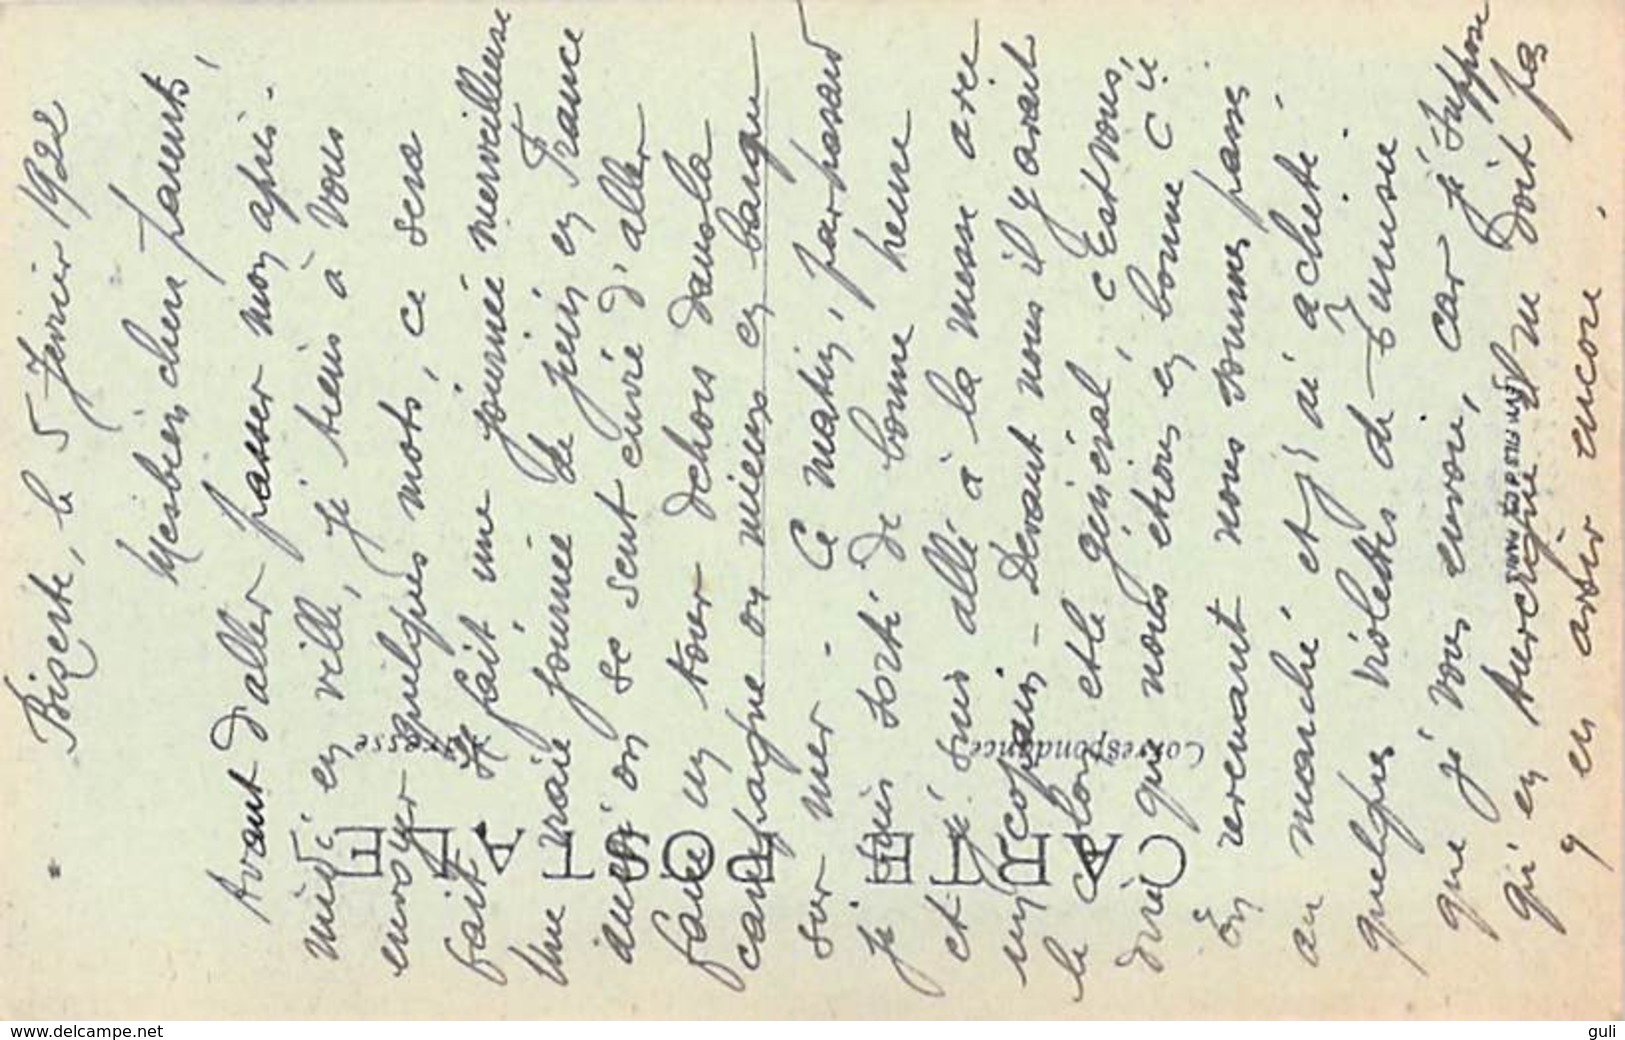 Bizerte, le 5 Fevrier 1922
Mes bien chers parents,
Avant d'aller passer mon après-
midi en ville, je tiens à vous
envoyer quelques mots, ce sera
fait. Il fait une journée merveilleuse
Une vraie journée de juin en France
aussi on se sent envié d'aller
faire un tour dehors dans la
campagne ou mieux en barque
sur mer. Ce matin, par hasard
je suis sorti de bonne heure
et je suis allé à la messe avec
un copain - Devant nous il y avait
le colon et le général, c'est vous
dire que nous étions en bonne Cie
En revenant nous sommes passés
au marché et j'ai acheté
quelques violettes de Tunisie
que je vous envoie, car je suppose
qu'en Auvergne il ne doit pas
y en avoir encore.
CARTE POSTALE
Correspondance
Adresse
www.delcampe.net
guli